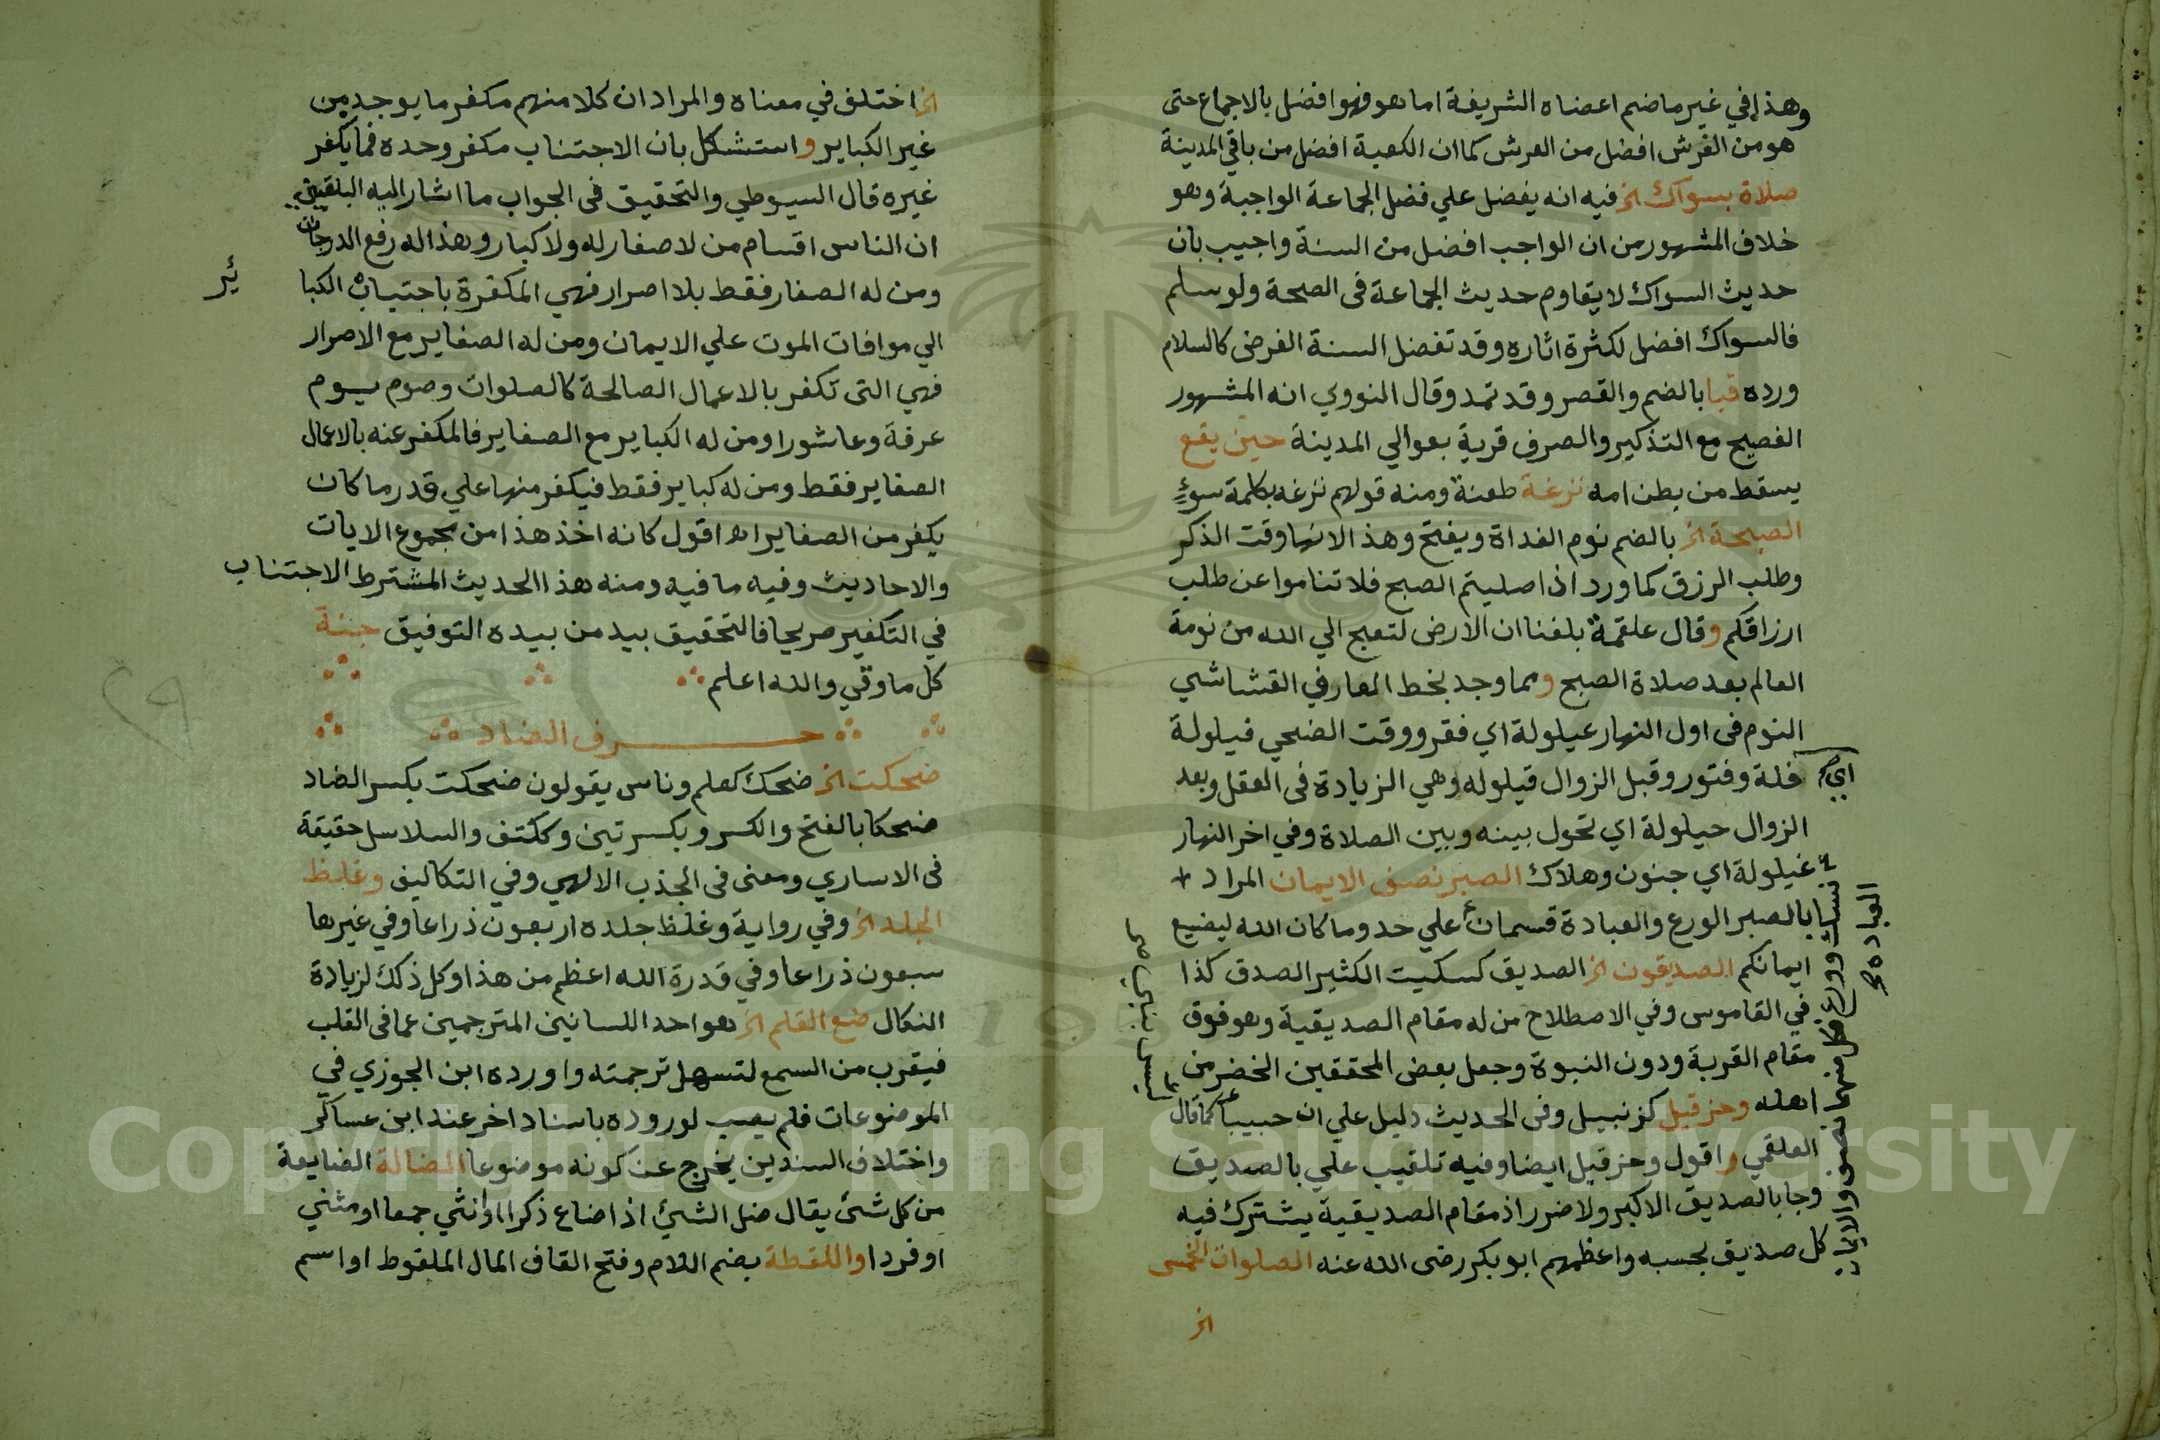 وهذا في غير ما ضم اعضاه الشريفة اما هو فهو افضل بالاجماع حتى
هو من الفرش افضل من العرش كما ان الكعبة افضل من باقي المدينة
صلاة بسواك الخ فيه انه يفضل علي فضل الجماعة الواجبة وهو
خلاف المشهور من ان الواجب افضل من السنة واجيب بان
حديث السواك لا يقاوم حديث الجماعة في الصحة ولو سلم
فالسواك افضل لكثرة اثاره وقد تفضل السنة الفرض كالسلام
ورده قبا بالضم والقصر وقد تمد وقال النووي انه المشهور
الفصيح مع التذكير والصرف قرية بعوالي المدينة حين يقع
يسقط من بطن امه نزغة طعنة ومنه قولهم نزغه بكلمة سوء
الصبحة الخ بالضم نوم الغداة ويفتح وهذا لانها وقت الذكر
وطلب الرزق كما ورد اذا صليتم الصبح فلا تناموا عن طلب
ارزاقكم وقال علقمة بلغنا ان الارض لتعج الي الله من نومة
العالم بعد صلاة الصبح ومما وجد بخط العارفي القشاشي
النوم في اول النهار عيلولة اي فقر ووقت الضحي فيلولة
اي
فلة وفتور وقبل الزوال قيلوله وهي الزيادة في العقل وبعد
الزوال حيلولة اي تحول بينه وبين الصلاة وفي اخر النهار
غيلولة اي جنون وهلاك الصبر نصف الايمان المراد
بالصبر الورع والعبادة قسمان علي حد وما كان الله ليضيع
ايمانكم الصديقون الخ الصديق كسكيت الكثير الصدق كذا
في القاموس وفي الاصطلاح من له مقام الصديقية وهو فوق
مقام القربة ودون النبوة وجعل بعض المحققين الخضر من
اهله وحزقيل كزنبيل وفي الحديث دليل علي ان حبيبا كما قال
العلقمي واقول وحزقيل ايضا وفيه تلقيب علي بالصديق
وجا بالصديق الاكبر ولا ضرر اذ مقام الصديقية يشترك فيه
كل صديق بحسبه واعظمهم ابو بكر رضى الله عنه الصلوات الخمس
الخ
الخ اختلف في معناه والمراد ان كلا منهم مكفر ما يوجد من
غير الكباير واستشكل بان الاجتناب مكفر وحده فما يكفر
غيره قال السيوطي والتحقيق في الجواب ما اشار اليه البلقيني
ان الناس اقسام من لا صغار له ولا كبار وهذا له رفع الدرجات
ومن له الصغار فقط بلا اصرار فهي المكفرة باجتياب الكبا
ئر
الي موافات الموت علي الايمان ومن له الصغاير مع الاصرار
فهي التي تكفر بالاعمال الصالحة كالصلوات وصوم يوم
عرفة وعاشورا ومن له الكباير مع الصغاير فالمكفر عنه بالاعمال
الصغاير فقط ومن له كباير فقط فيكفر منها علي قدر ما كان
يكفر من الصغاير اه اقول كانه اخذ هذا من مجموع الايات
والاحاديث وفيه ما فيه ومنه هذا الحديث المشترط الاجتناب
في التكفير صريحا فالتحقيق بيد من بيده التوفيق جنة
كل ما وقي والله اعلم
حرف الضاد
ضحكت الخ ضحك كعلم وناس يقولون ضحكت بكسر الضاد
ضحكا بالفتح والكسر وبكسرتين وككتف والسلاسل حقيقة
في الاساري ومعنى في الجذب الالهي وفي التكاليف وغلظ
الجلد الخ وفي رواية وغلظ جلده اربعون ذراعا وفي غيرها
سبعون ذراعا وفي قدرة الله اعظم من هذا وكل ذلك لزيادة
النكال ضع القلم الخ هو احد اللسانين المترجمين عما في القلب
فيقرب من السمع لتسهل ترجمته واورده ابن الجوزي في
الموضوعات فلم يصب لوروده باسناد اخر عند ابن عساكر
واختلاف السندين يخرج عن كونه موضوعا الضالة الضايعة
من كل شئ يقال ضل الشئ اذا ضاع ذكرا او انثي جمعا او مثني
او فردا واللقطة بضم اللام وفتح القاف المال الملقوط او اسم
Copyright © King Saud University